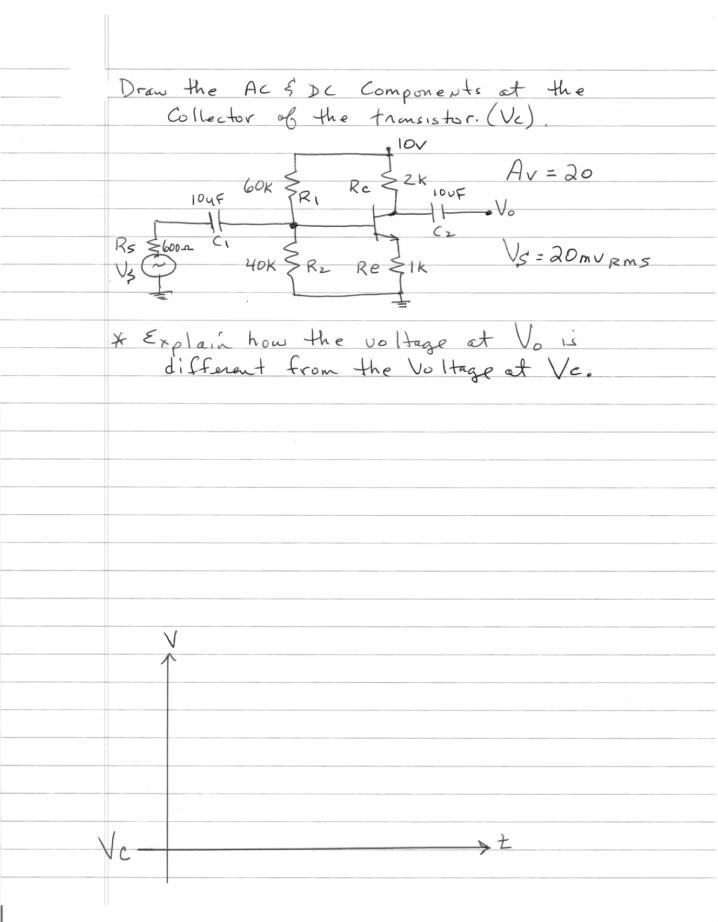 Draw the AC & DC Components at the
Collector of the transistor. (Vc).
10V
Av = 20
60K R1 Rc 2K
10uF
10UF
Vo
C1
C2
Rs 600Ω
Vs
40K R2 Re 1K
Vs = 20mV RMS
* Explain how the voltage at Vo is
different from the Voltage at Vc.
V
Vc
t